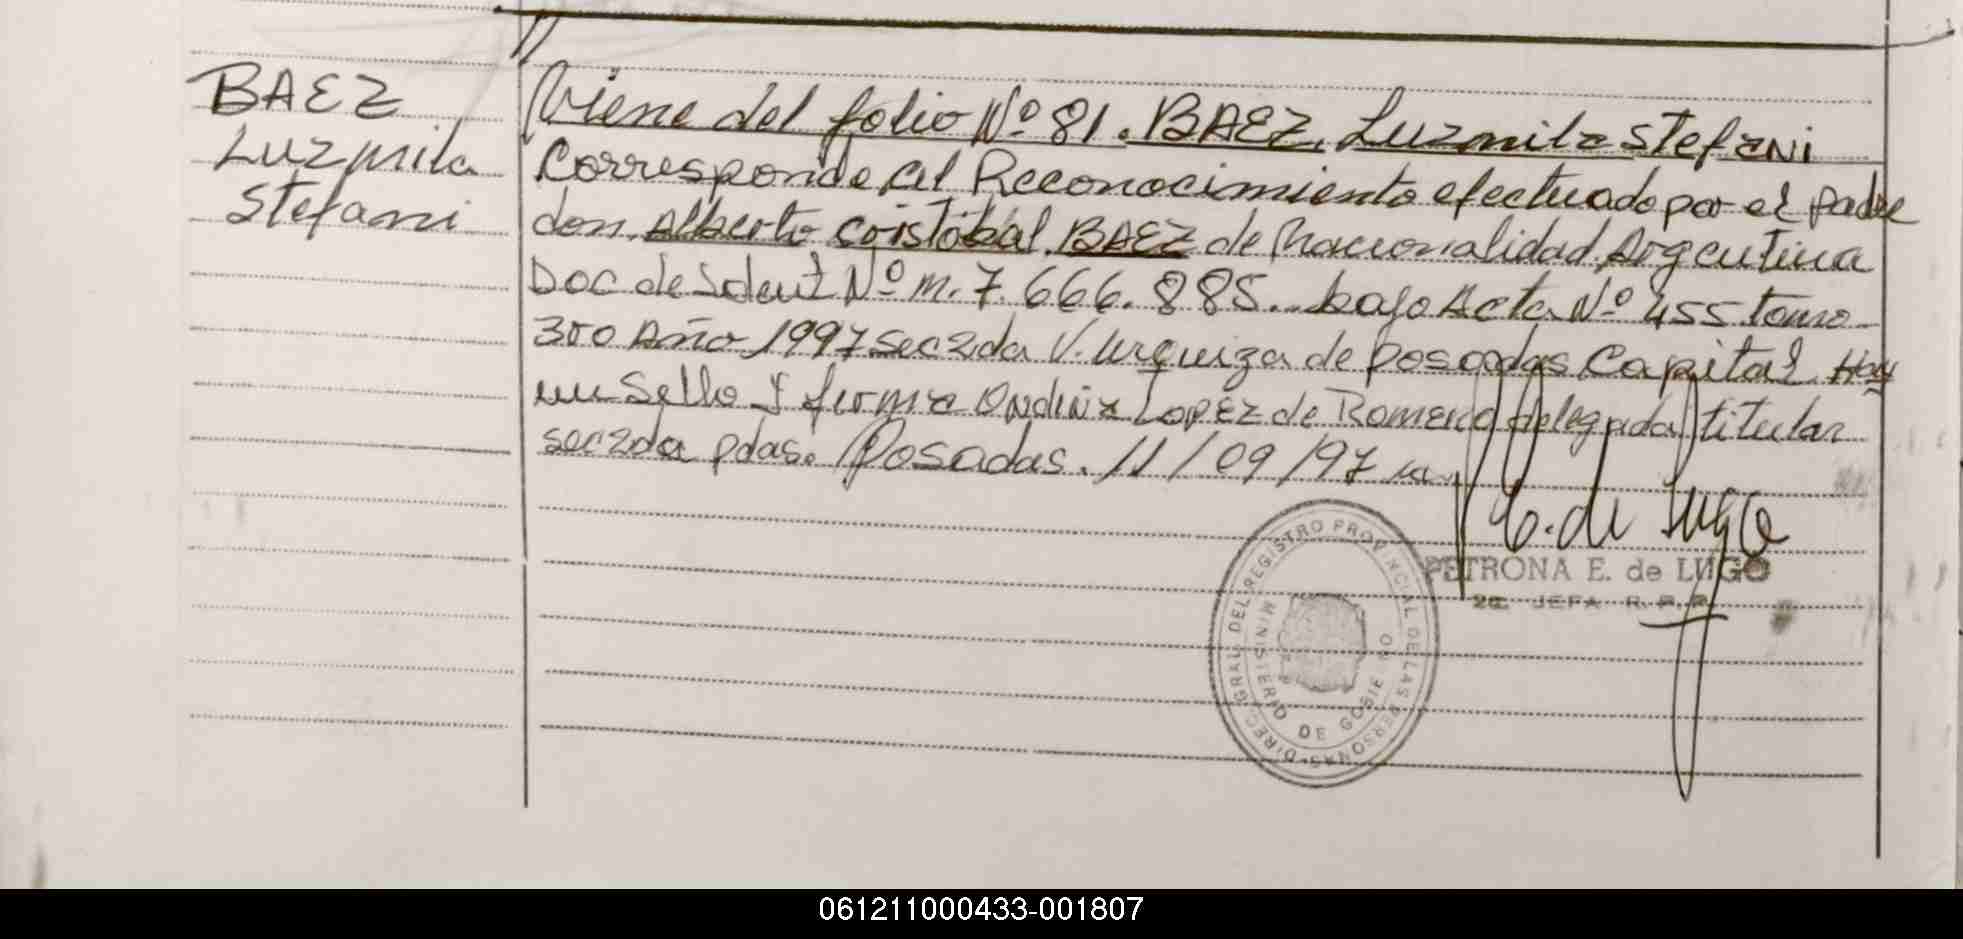 BAEZ
Luzmila
Stefani
Viene del folio Nº 81. BAEZ, Luzmila Stefani
Corresponde al Reconocimiento efectuado por el padre
don Alberto Cristobal BAEZ de Nacionalidad Argentina
Doc de Ident Nº m. 7.666.885. bajo Acta Nº 455 tomo
300 Año 1997 Sec 2da V. Urquiza de Posadas Capital. Hay
un Sello y firma Ondina Lopez de Romero delegada titular
sec 2da pdas. Posadas. 11/09/97
E. de Lugo
PETRONA E. de LUGO
2a. JEFA R.P.P.
DIREC. GRAL. DEL REGISTRO PROVINCIAL DE LAS PERSONAS
MINISTERIO DE GOBIERNO
061211000433-001807